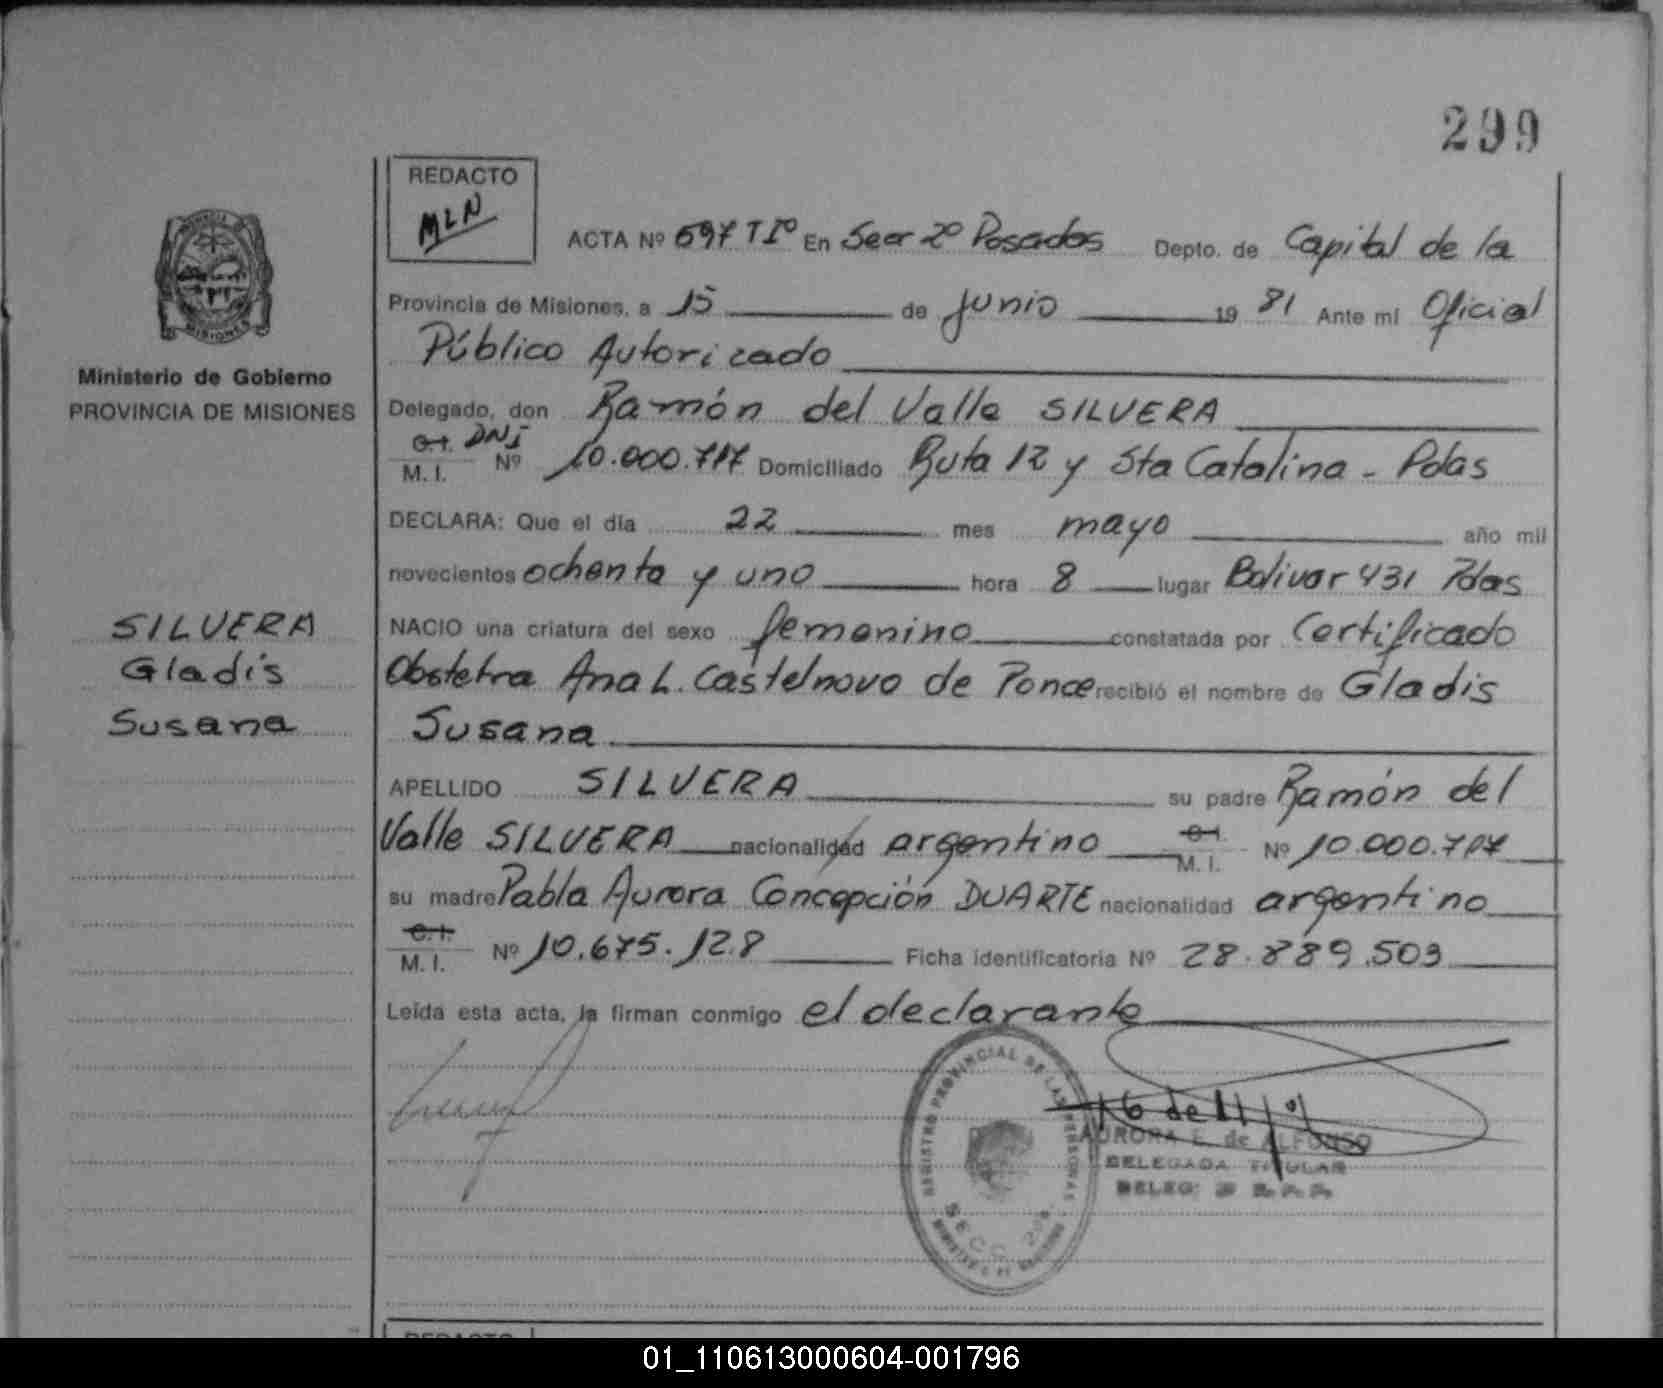 299
REDACTO
MLN
ACTA Nº 697 TIº En Secc 2º Posadas Depto. de Capital de la
Provincia de Misiones, a 15 de junio 19 81 Ante mi Oficial
Público Autorizado
Ministerio de Gobierno
PROVINCIA DE MISIONES
Delegado, don Ramón del Valle SILVERA
C.I. DNI
M. I. Nº 10.000.717 Domiciliado Ruta 12 y Sta Catalina - Pdas
DECLARA: Que el día 22 mes mayo año mil
novecientos ochenta y uno hora 8 lugar Bolivar 431 Pdas
SILVERA
Gladis
Susana
NACIO una criatura del sexo femenino constatada por Certificado
Obstetra Ana L. Castelnovo de Ponce recibió el nombre de Gladis
Susana
APELLIDO SILVERA su padre Ramón del
Valle SILVERA nacionalidad argentino C.I. M. I. Nº 10.000.717
su madre Pabla Aurora Concepción DUARTE nacionalidad argentino
C.I. M. I. Nº 10.675.128 Ficha identificatoria Nº 28.889.503
Leída esta acta, la firman conmigo el declarante
REGISTRO PROVINCIAL DE LAS PERSONAS
SECC. 2da.
AURORA E. de ALFONSO
DELEGADA TITULAR
01_110613000604-001796